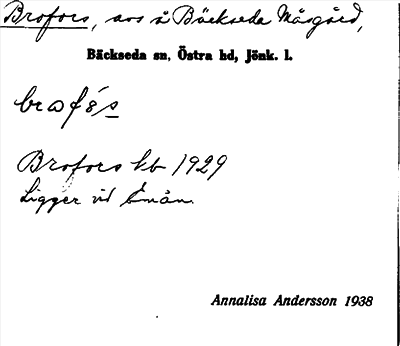 Brofors, avs å Bäckseda Måsgård,
Bäckseda sn, Östra hd, Jönk. l.
Brofors kb 1929
Ligger vid Emån.
Annalisa Andersson 1938